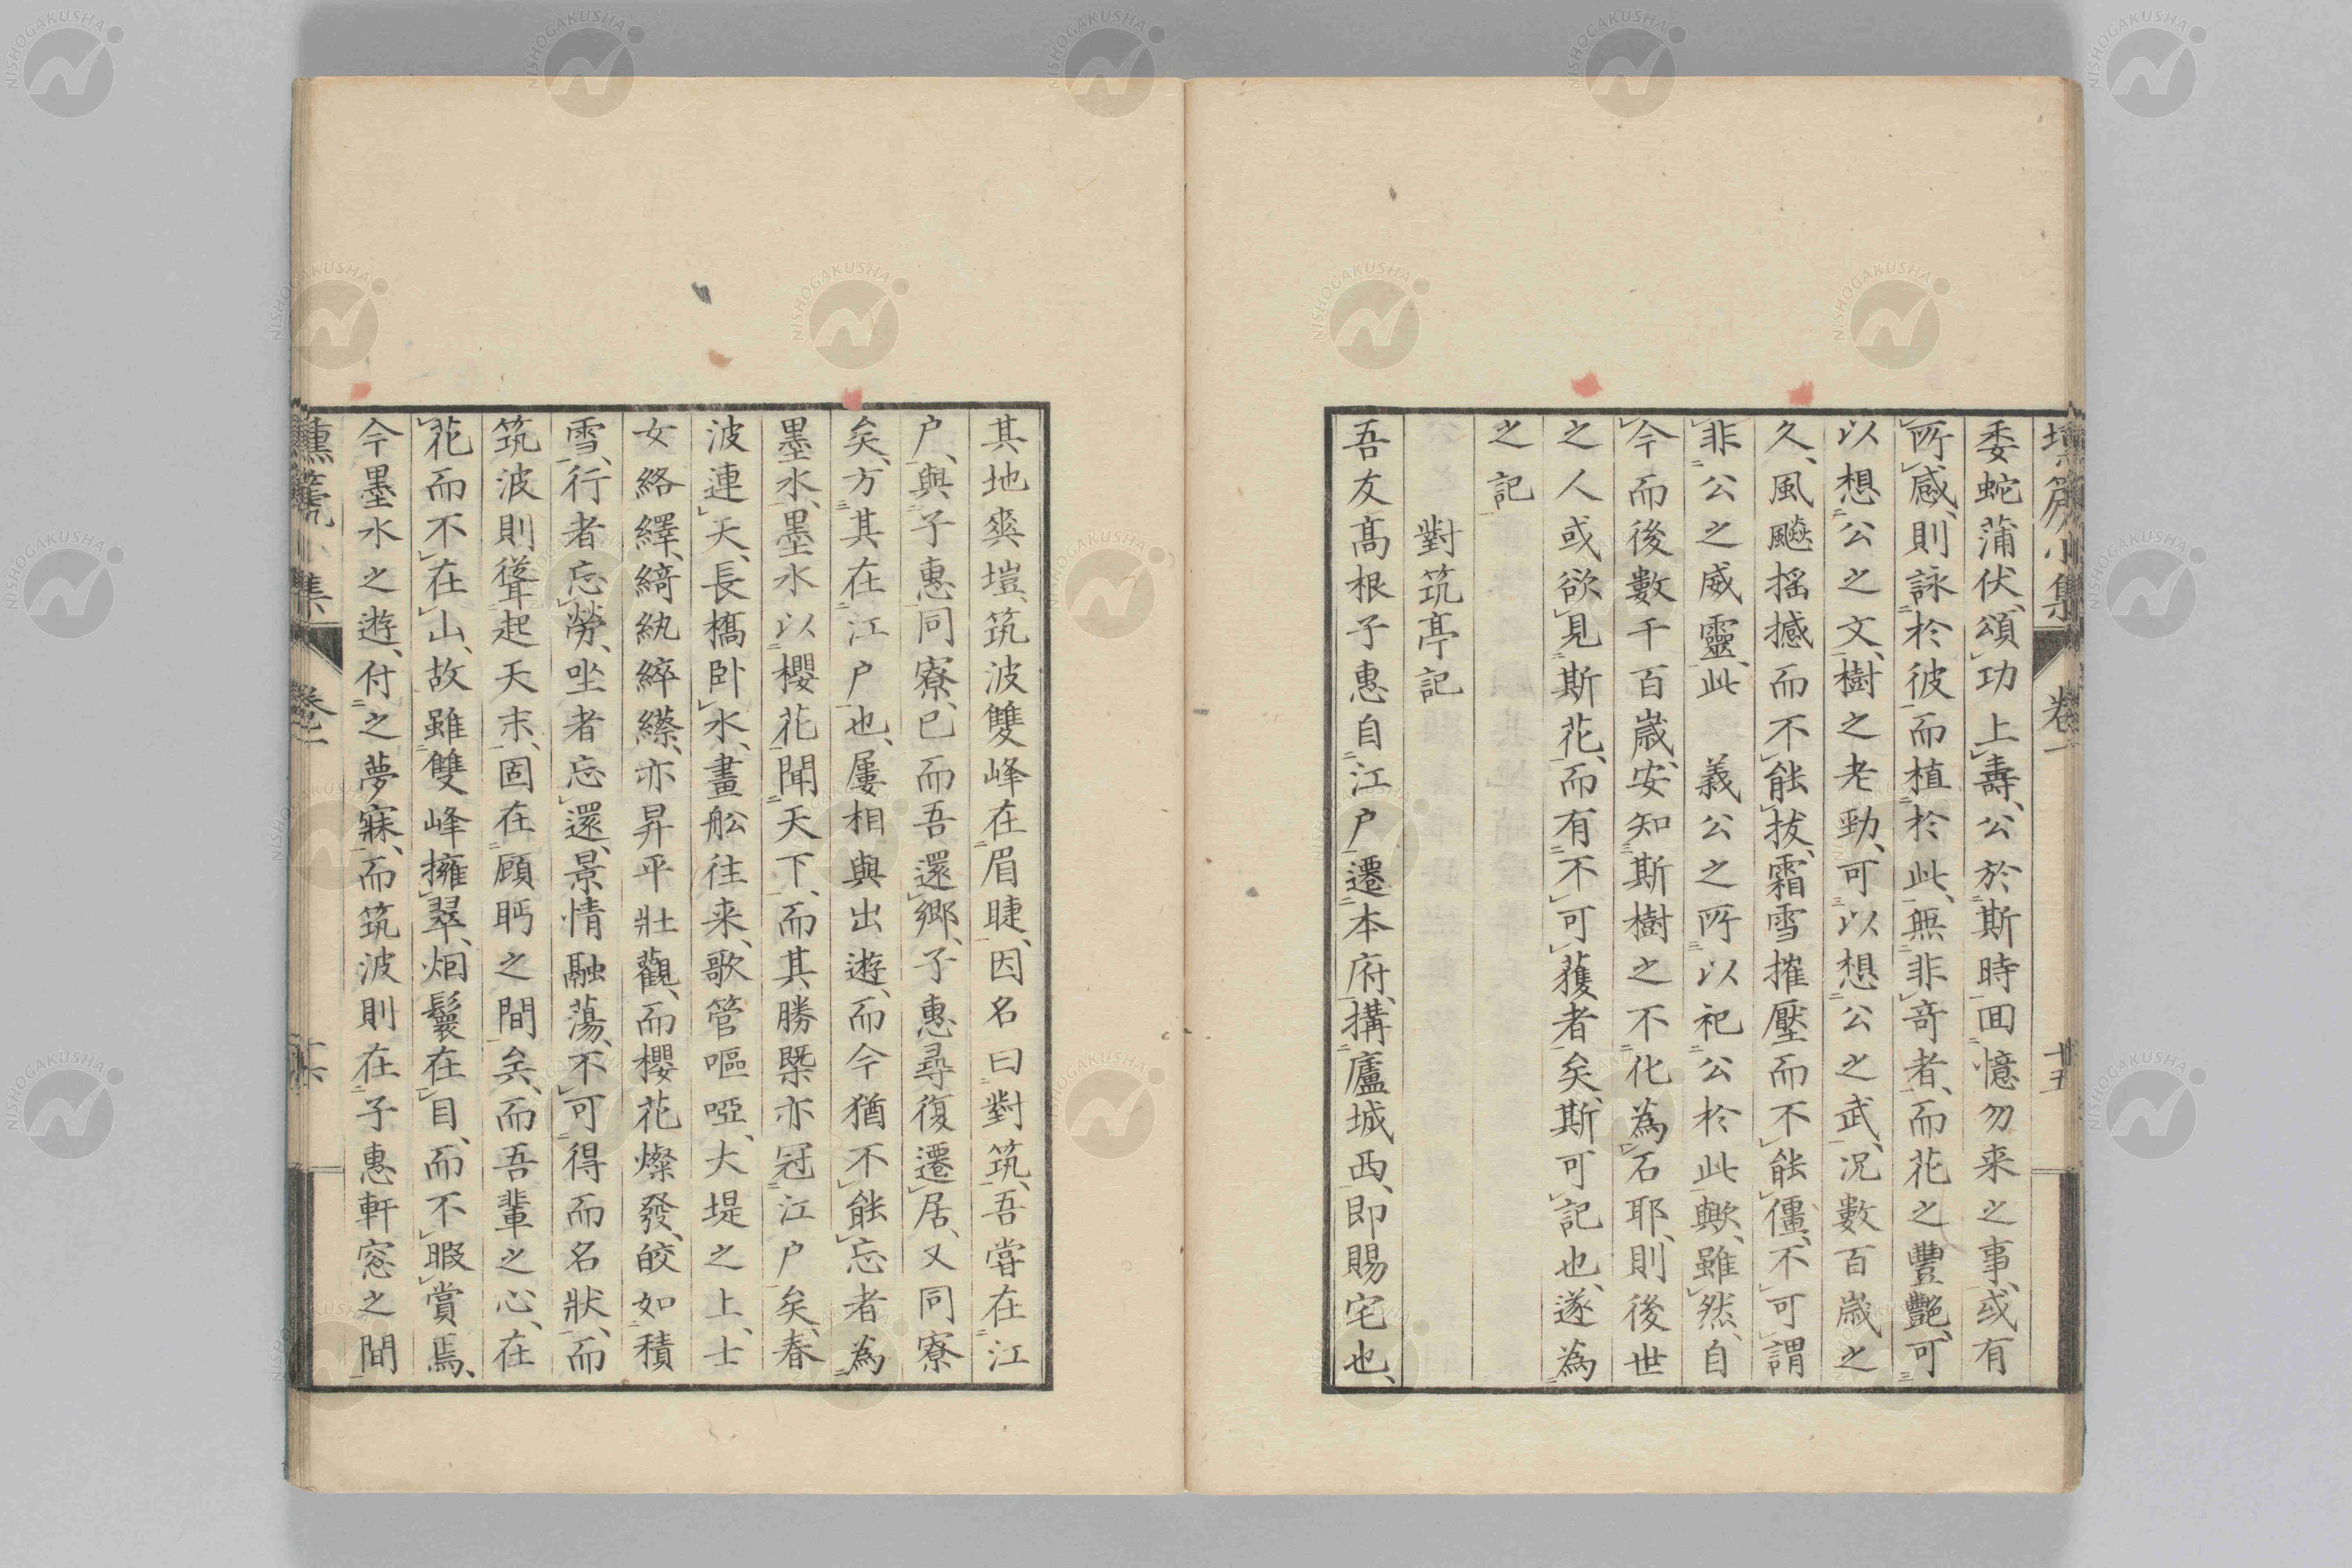 委蛇蒲伏、頌功上壽、公於斯時回憶勿来之事、或有
所感、則詠於彼、而植於此、無非奇者、而花之豐艷、可
以想公之文、樹之老勁、可以想公之武、况數百歳之
久、風飈揺撼而不能拔、霜雪摧壓而不能僵、不可謂
非公之威靈、此　義公之所以祀公於此歟、雖然、自
今而後數千百歳、安知斯樹之不化為石耶、則後世
之人或欲見斯花、而有不可獲者矣、斯可記也、遂為
之記
對筑亭記
吾友髙根子惠自江戸遷本府、搆廬城西、即賜宅也、
其地爽塏、筑波雙峰在眉睫、因名曰對筑、吾嘗在江
戸、與子惠同寮、已而吾還郷、子惠尋復遷居、又同寮
矣、方其在江戸也、屢相與出遊、而今猶不能忘者為
墨水、墨水以櫻花聞天下、而其勝槩亦冠江戸矣、春
波連天、長橋卧水、畫舩往来、歌管嘔啞、大堤之上、士
女絡繹、綺紈綷縩、亦昇平壯觀、而櫻花燦發、皎如積
雪、行者忘勞、坐者忘還、景情融蕩、不可得而名狀、而
筑波則聳起天末、固在顧眄之間矣、而吾輩之心、在
花而不在山、故雖雙峰擁翠、烟鬟在目、而不暇賞焉、
今墨水之遊、付之夢寐、而筑波則在子惠軒窓之間